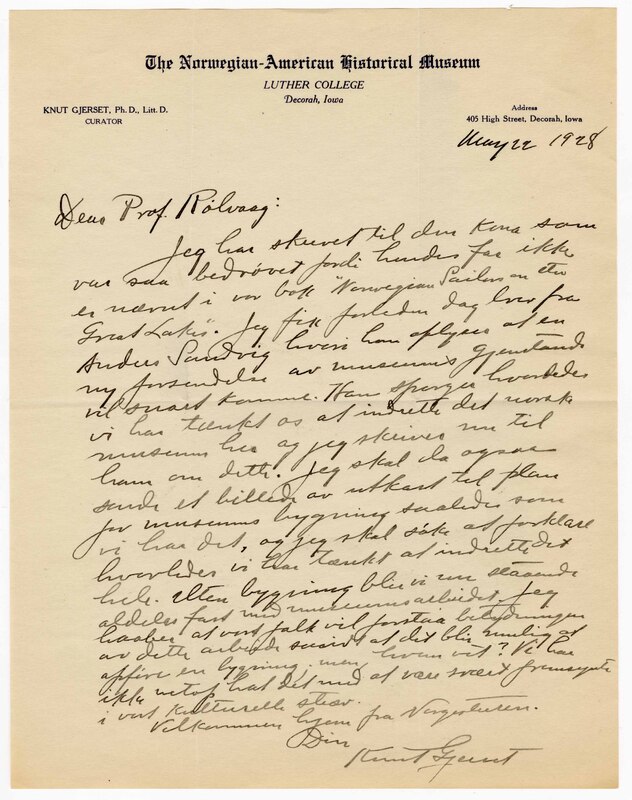 The Norwegian-American Historical Museum
LUTHER COLLEGE
Decorah, Iowa
KNUT GJERSET, Ph. D., Litt. D.
CURATOR
Address
405 High Street, Decorah, Iowa
May 22 1928
Dear Prof. Rölvaag:
Jeg har skrevet til den kona som
var saa bedrøvet fordi hendes far ikke
er nævnt i vor bok "Norwegian Sailors on the
Great Lakes". Jeg fik forleden dag brev fra
Anders Sandvig hvori han oplyses at en
ny forsendelse av museums gjenstande
vil snart komme. Han spørger hvorledes
vi har tænkt os at indrette det norske
museum her og jeg skriver nu til
ham om dette. Jeg skal da ogsaa
sende et billede av utkast til plan
for museums bygning saaledes som
vi har det, og jeg skal söke at forklare
hvorledes vi har tænkt at indrette det
hele. Uten bygning blir vi nu staaende
aldeles fast med museumsarbeidet. Jeg
haaber at vort folk vil forstaa betydningen
av dette arbeide saavidt at det blir mulig at
opføre en bygning, men hvem vet? Vi har
ikke netop hat det med at være svært fremsynte
i vort kulturelle stræv.
Velkommen hjem fra Norgesturen.
Din
Knut Gjerset